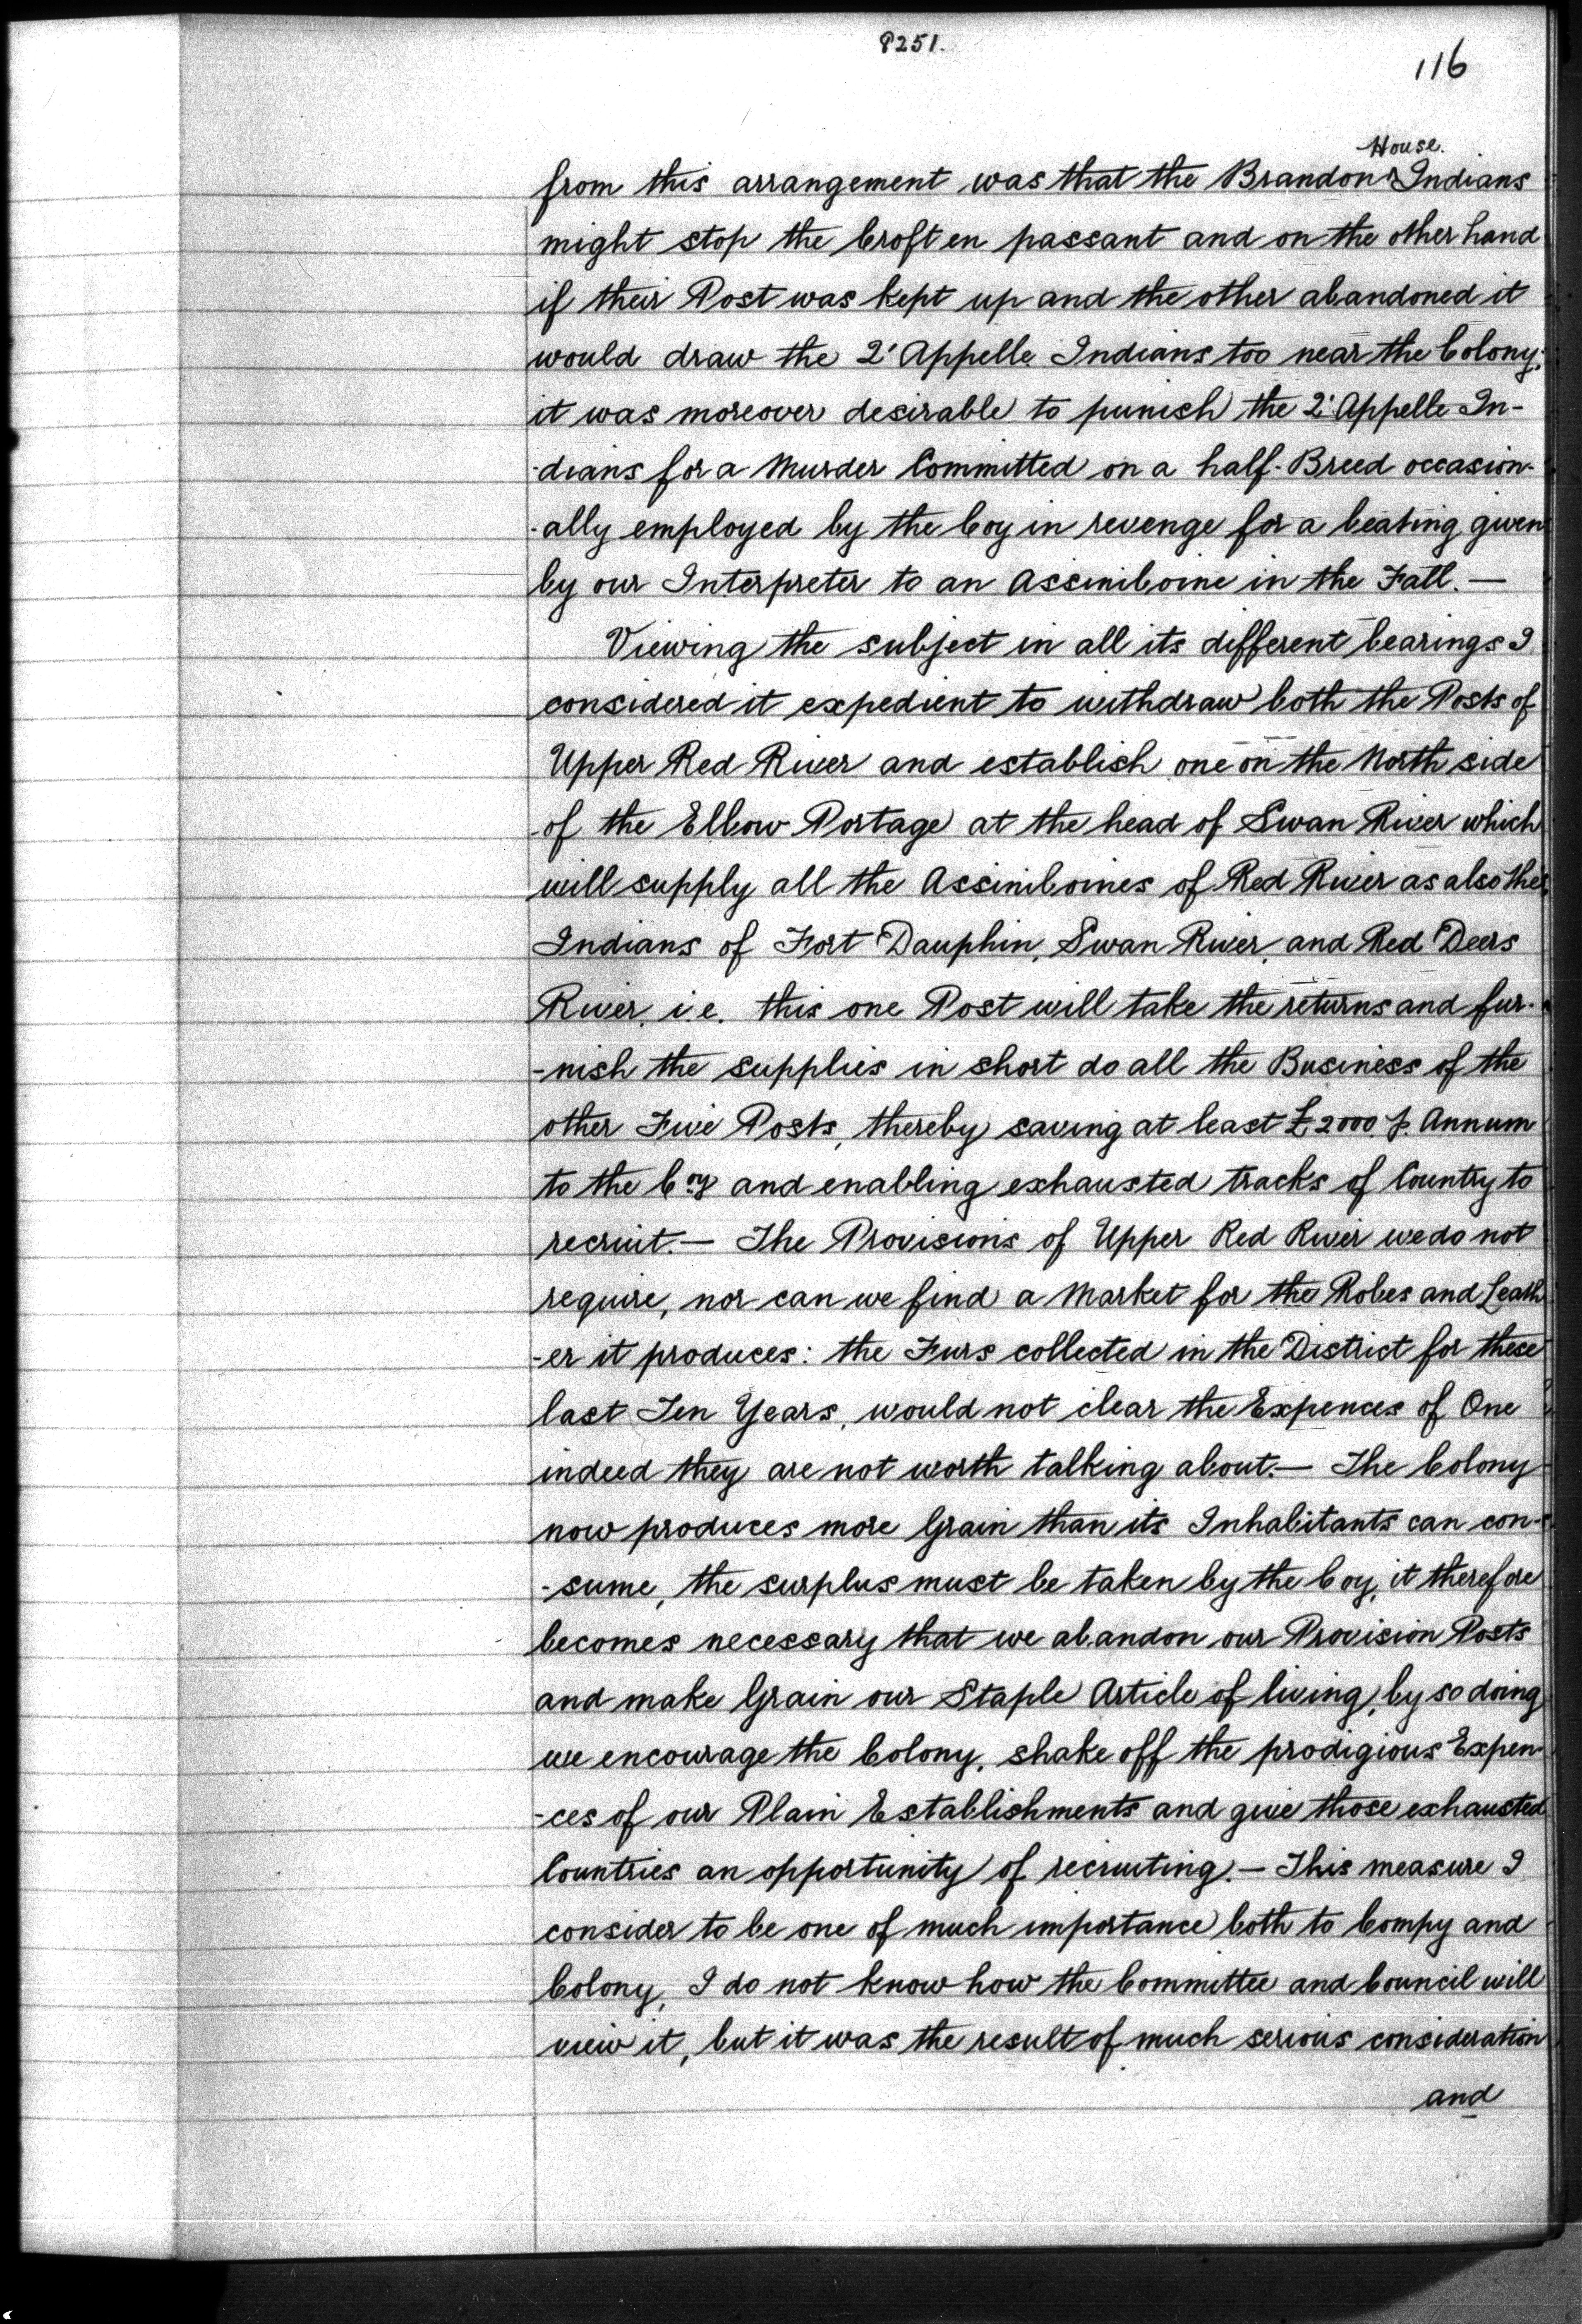 P251.
116
House.
from this arrangement was that the Brandon ^ Indians
might stop the Croft en passant and on the other hand
if their Post was kept up and the other abandoned it
would draw the Q'Appelle Indians too near the Colony;
it was moreover desirable to punish the Q'Appelle In-
-dians for a Murder Committed on a half-Breed occasion-
-ally employed by the Coy in revenge for a beating given
by our Interpreter to an Assiniboine in the Fall. —
Viewing the subject in all its different bearings I
considered it expedient to withdraw both the Posts of
Upper Red River and establish one on the North side
of the Elbow Portage at the head of Swan River which
will supply all the Assiniboines of Red River as also the
Indians of Fort Dauphin, Swan River, and Red Deers
River, i.e. this one Post will take the returns and fur-
-nish the supplies in short do all the Business of the
other Five Posts, thereby saving at least £2000 p. Annum
to the Coy and enabling exhausted tracks of Country to
recruit. — The Provisions of Upper Red River we do not
require, nor can we find a Market for the Robes and Leath
-er it produces: the Furs collected in the District for these
last Ten Years, would not clear the Expences of One
indeed they are not worth talking about. — The Colony
now produces more Grain than its Inhabitants can con-
-sume, the surplus must be taken by the Coy, it therefore
becomes necessary that we abandon our Provision Posts
and make Grain our Staple Article of living, by so doing
we encourage the Colony, shake off the prodigious Expen-
-ces of our Plain Establishments and give those exhausted
Countries an opportunity of recruiting. — This measure I
consider to be one of much importance both to Compy and
Colony, I do not know how the Committee and Council will
view it, but it was the result of much serious consideration
and